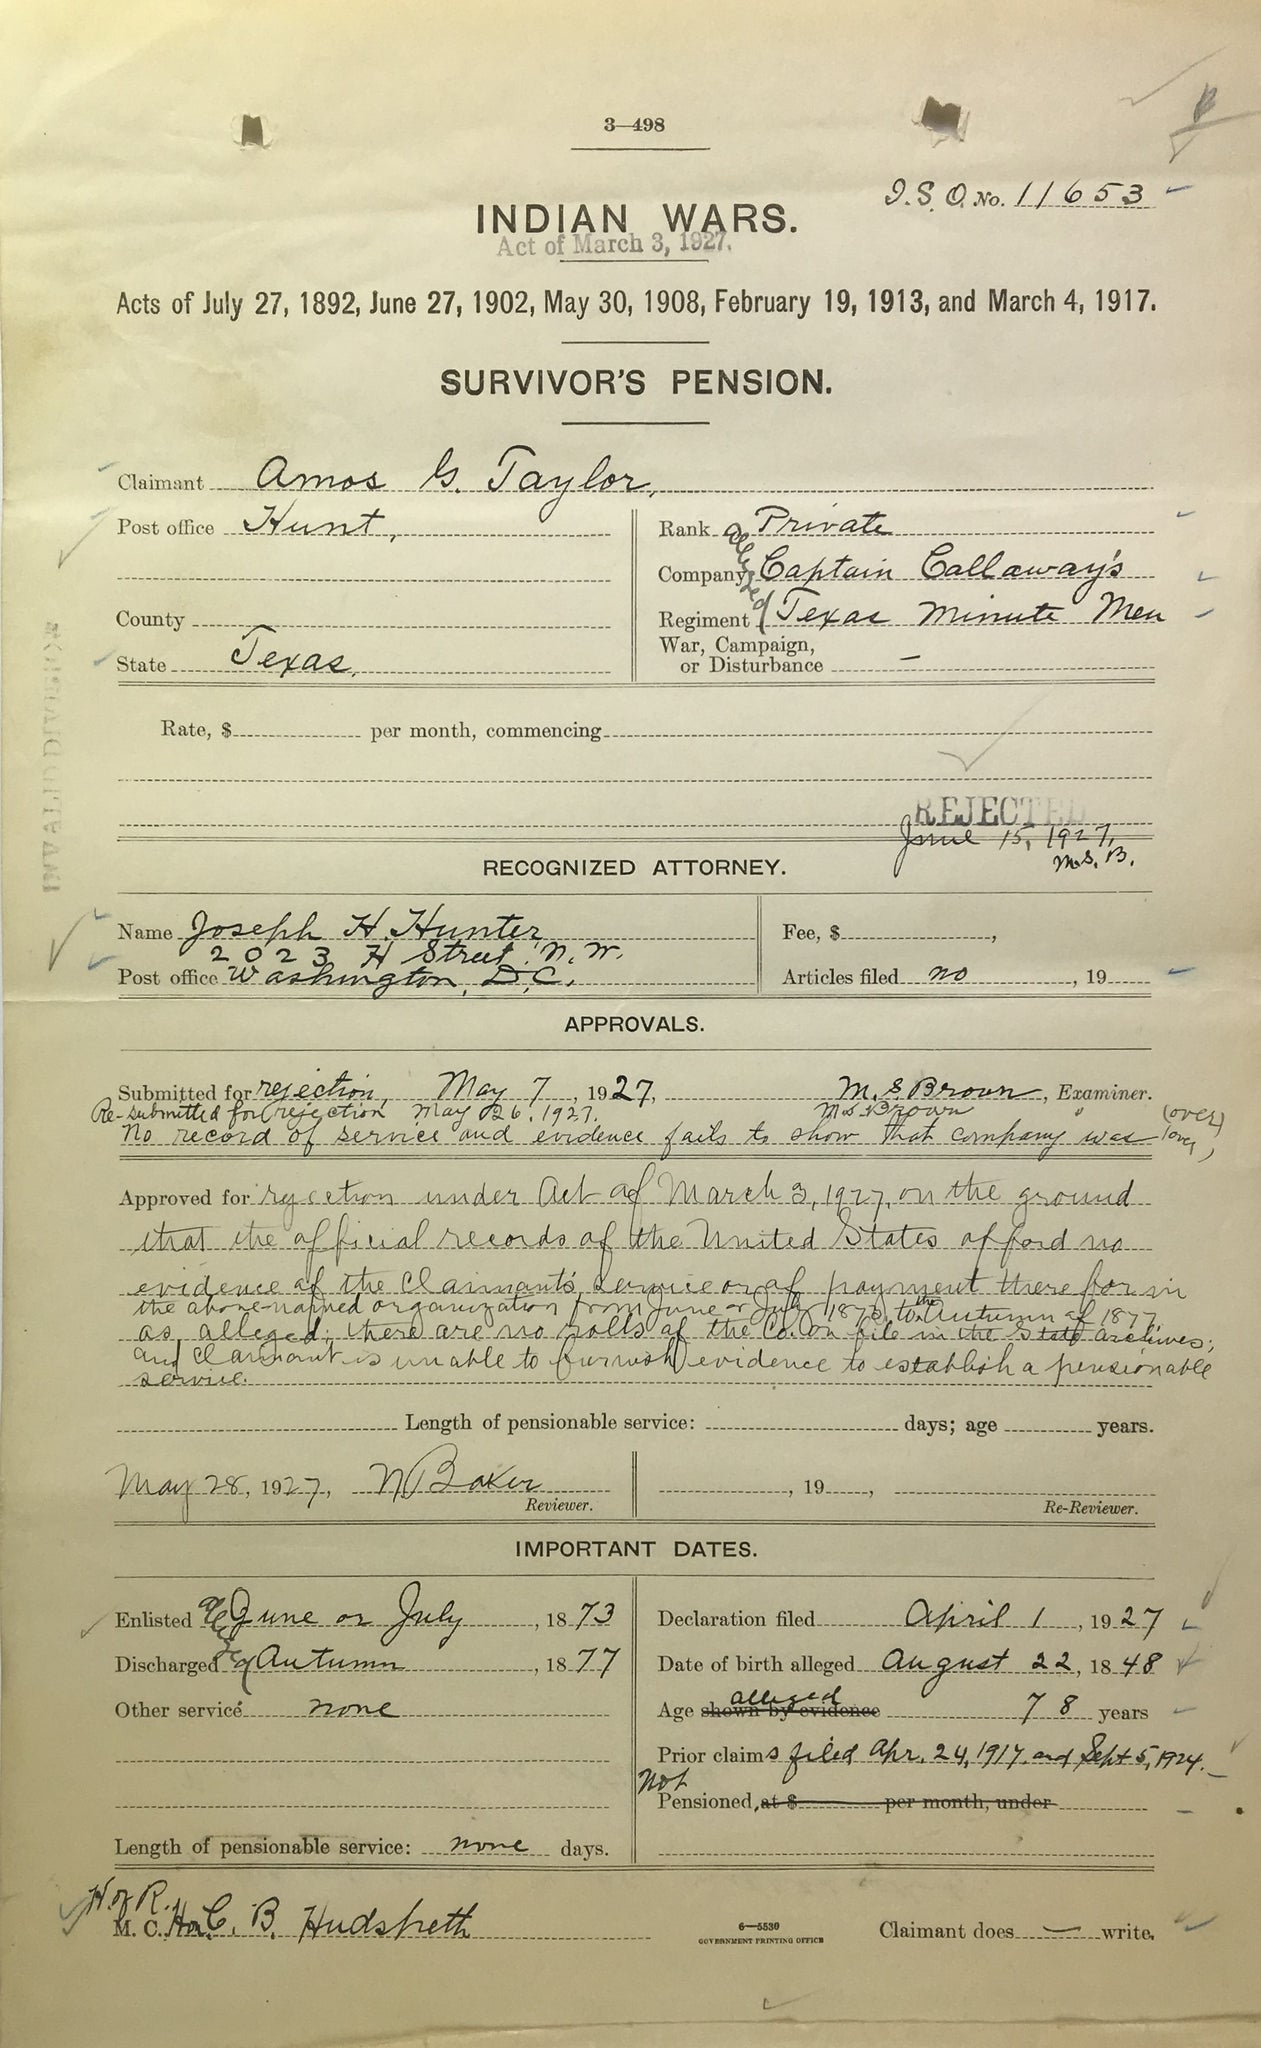 3—498
I. S. O. No. 11653
INDIAN WARS.
Act of March 3, 1927.
Acts of July 27, 1892, June 27, 1902, May 30, 1908, February 19, 1913, and March 4, 1917.
SURVIVOR'S PENSION.
Claimant Amos G. Taylor,
Post office Hunt,
County
State Texas,
alleged
Rank Private
Company Captain Callaway's
Regiment Texas Minute Men
War, Campaign,
or Disturbance —
Rate, $ per month, commencing
INVALID DIVISION
REJECTED
June 15, 1927,
M.S.B.
RECOGNIZED ATTORNEY.
Name Joseph H. Hunter,
2023 H Street N.W.
Post office Washington, D.C.
Fee, $ ,
Articles filed no , 19
APPROVALS.
Submitted for rejection, May 7, 1927, M. S. Brown, Examiner.
Re-submitted for rejection May 26, 1927. M.S. Brown " (over)
No record of service and evidence fails to show that company was (over)
Approved for rejection under Act of March 3, 1927, on the ground
that the official records of the United States afford no
evidence of the claimant's service or of payment therefor in
the above-named organization from June or July 1873 to the Autumn of 1877
as alleged; there are no rolls of the Co. on file in the State archives;
and claimant is unable to furnish evidence to establish a pensionable
service.
Length of pensionable service: days; age years.
May 28, 1927, N Baker
Reviewer.
, 19 ,
Re-Reviewer.
IMPORTANT DATES.
alleged
Enlisted June or July, 1873
Discharged Autumn, 1877
Other service none
Length of pensionable service: none days.
Declaration filed April 1, 1927
Date of birth alleged August 22, 1848
alleged
Age shown by evidence 78 years
Prior claims filed Apr. 24, 1917 and Sept 5, 1924.
Not
Pensioned, at $ per month, under
H. of R.
M. C. Hon. C. B. Hudspeth
6—5530
GOVERNMENT PRINTING OFFICE
Claimant does — write.